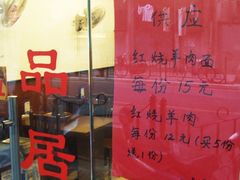 品居
供应
红烧羊肉面
每份15元
红烧羊肉
每份12元(买5份
送1份)